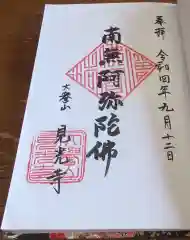 奉拝
令和四年九月十二日
南無阿弥陀佛
見光寺